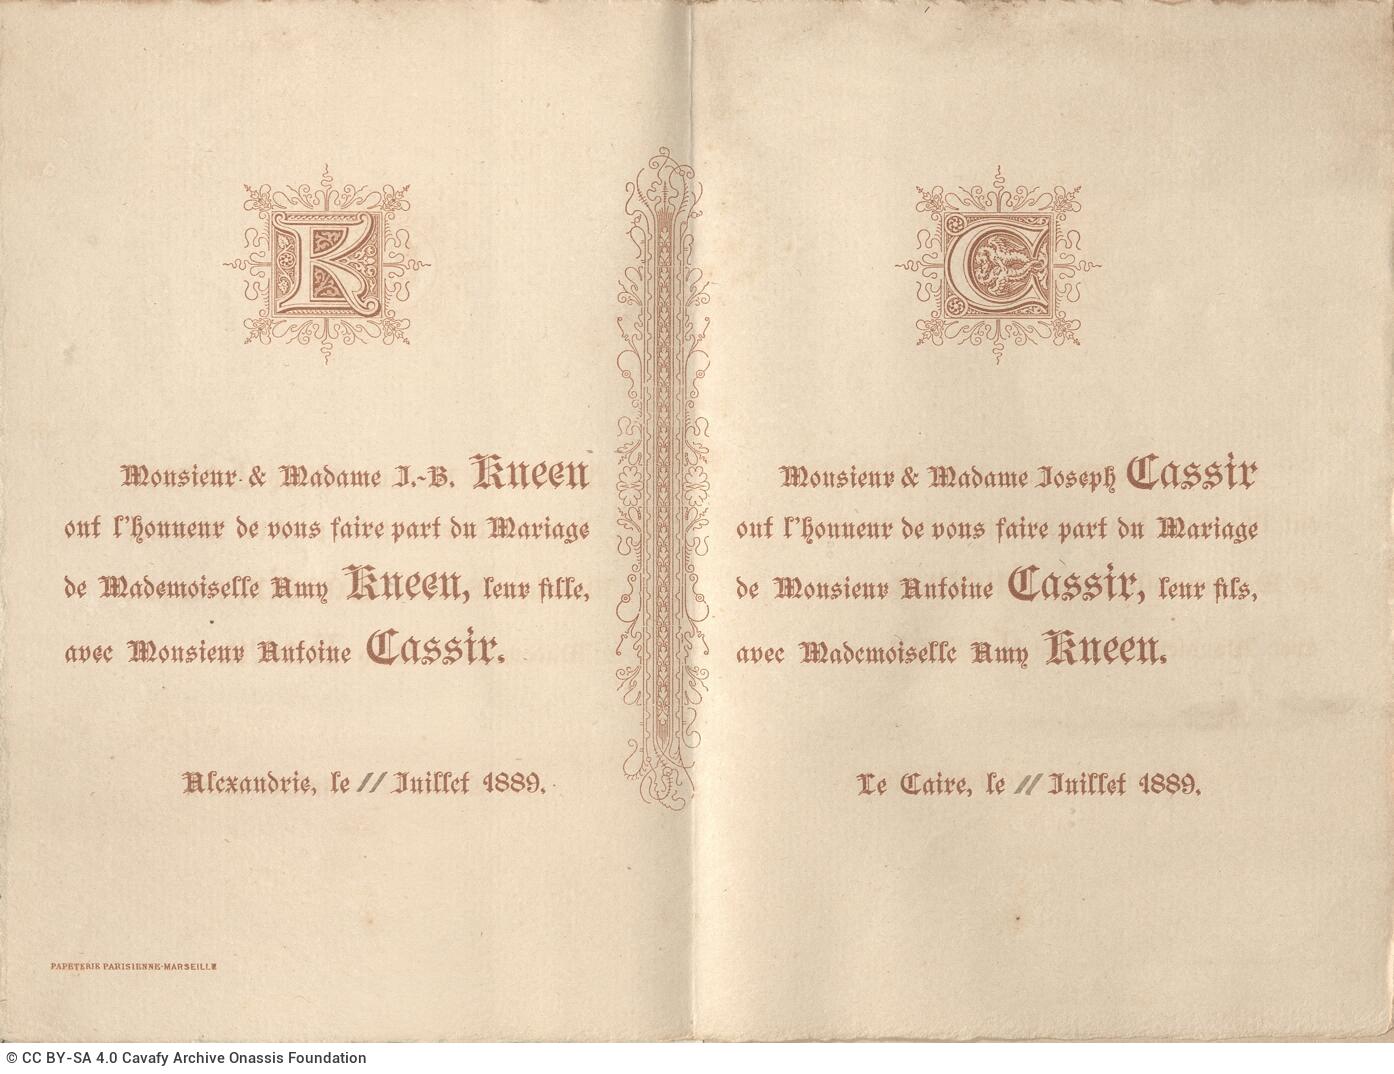 K
Monsieur & Madame J.-B. Kneen
ont l'honneur de vous faire part du Mariage
de Mademoiselle Amy Kneen, leur fille,
avec Monsieur Antoine Cassir.
Alexandrie, le 11 Juillet 1889.
PAPETERIE PARISIENNE-MARSEILLE
C
Monsieur & Madame Joseph Cassir
ont l'honneur de vous faire part du Mariage
de Monsieur Antoine Cassir, leur fils,
avec Mademoiselle Amy Kneen.
Le Caire, le 11 Juillet 1889.
© CC BY-SA 4.0 Cavafy Archive Onassis Foundation